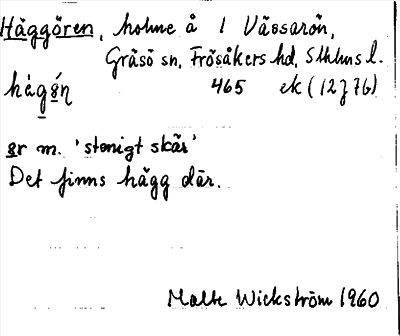 Häggören, holme å l Vässarön,
Gräsö sn, Frösåkers hd, Sthlms l.
hägö́n 465 ek (12J76)
ör m. 'stenigt skär'
Det finns hägg där.
Malte Wickström 1960